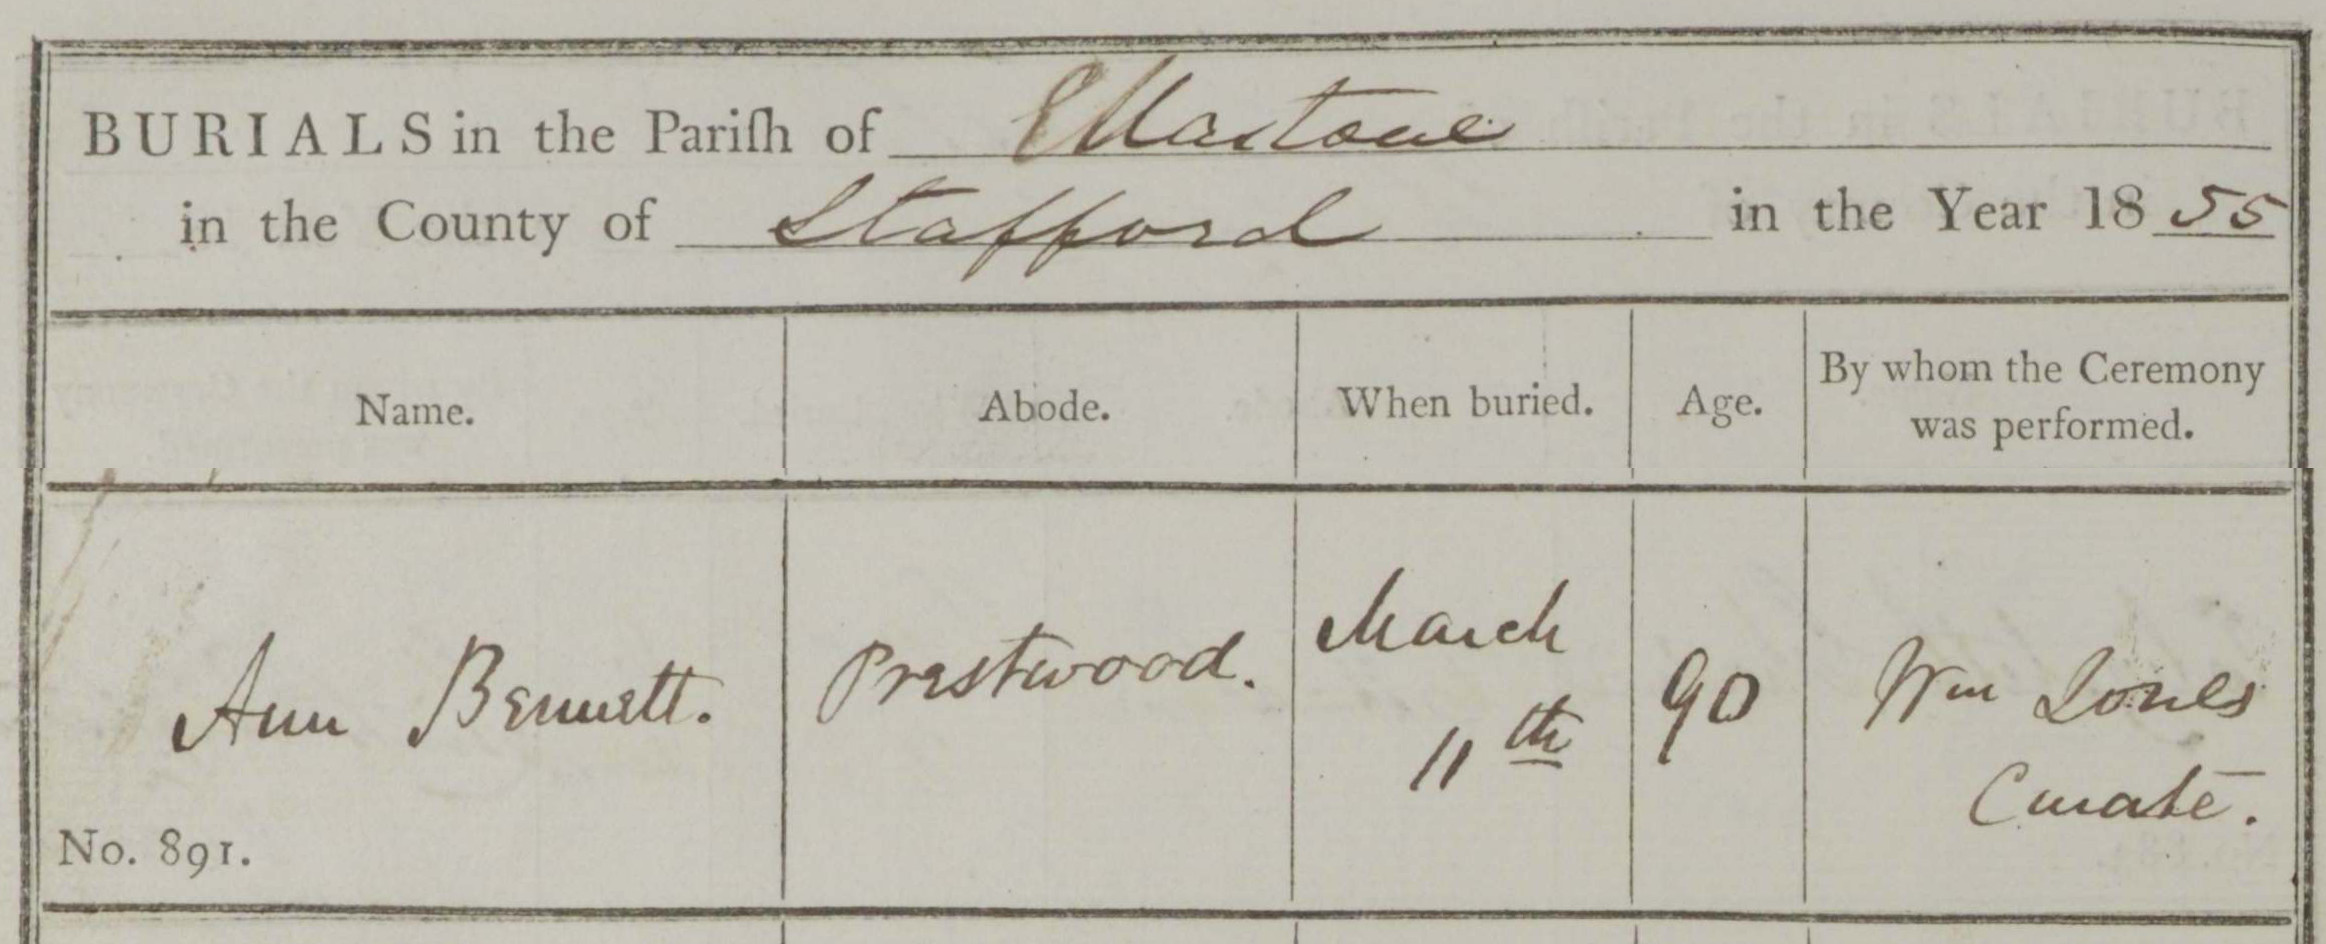 BURIALS in the Pariſh of Ellastone
in the County of Stafford in the Year 1855
Name. Abode. When buried. Age. By whom the Ceremony
was performed.
Ann Bennett. Prestwood. March
11th 90 Wm Jones
Curate.
No. 891.